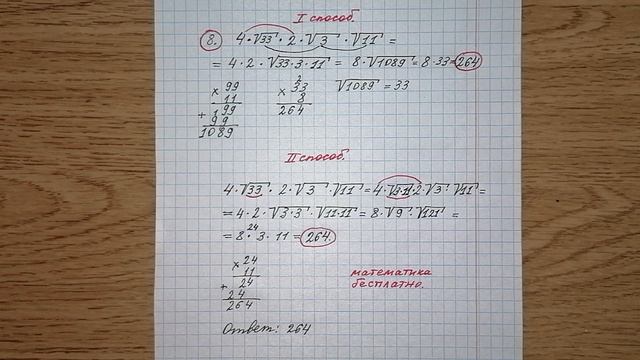 I способ.
8. 4·√33·2·√3·√11 =
= 4·2·√33·3·11 = 8·√1089 = 8·33 = 264
× 99
11
+ 199
99
1089
2
× 33
8
264
√1089 = 33
II способ.
4·√33·2·√3·√11 = 4·√3·11·2·√3·√11 =
= 4·2·√3·3·√11·11 = 8·√9·√121 =
24
= 8·3·11 = 264.
× 24
11
+ 24
24
264
математика
бесплатно.
Ответ: 264